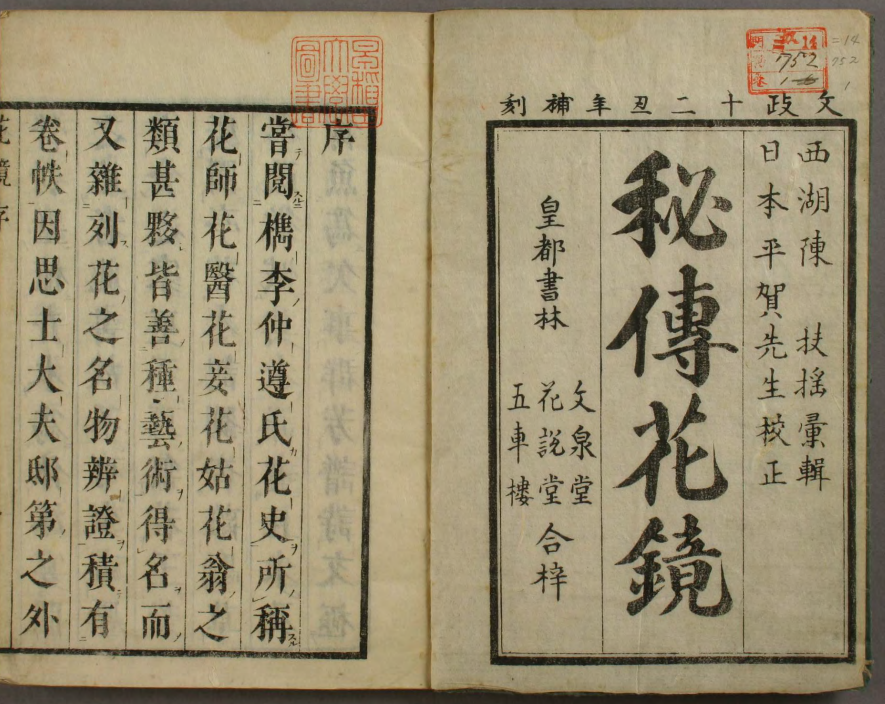 文政十二丑年補刻
西湖陳 扶搖彙輯
日本平賀先生挍正
秘傳花鏡
皇都書林
文泉堂
花説堂 合梓
五車樓
752
=14
752
1
序
嘗閲檇李仲遵氏花史所稱
花師花醫花妾花姑花翁之
類甚夥皆善種藝術得名而
又雜列花之名物辨證積有
卷帙因思士大夫邸第之外
花鏡序